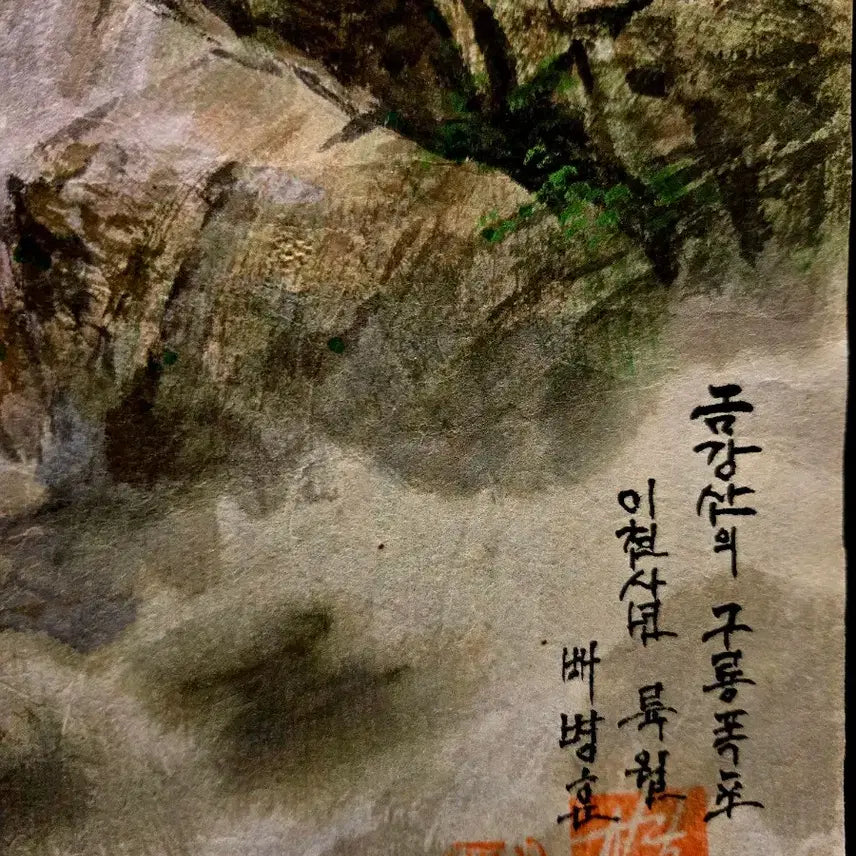 금강산의 구룡폭포
이천사년 륙월
배병훈